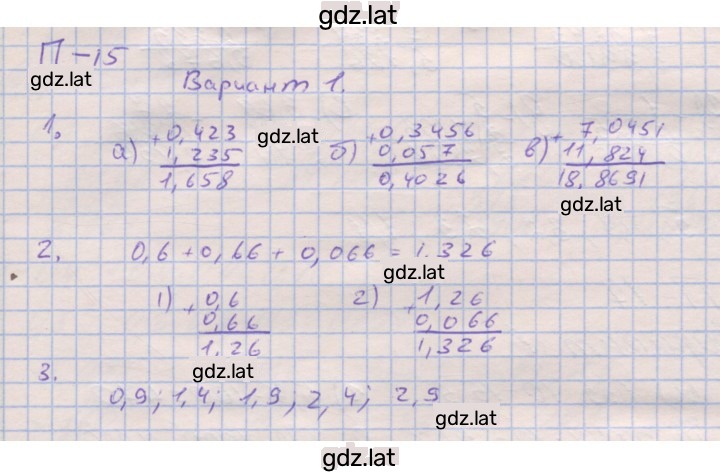 gdz.lat
П-15
gdz.lat
Вариант 1.
1.
а) + 0,423
1,235
1,658
gdz.lat
б) + 0,3456
0,057
0,4026
в) + 7,0451
11,824
18,8691
gdz.lat
2. 0,6 + 0,66 + 0,066 = 1.326
gdz.lat
1) + 0,6
0,66
1.26
2) + 1,26
0,066
1,326
gdz.lat
3.
0,9; 1,4; 1,9; 2,4; 2,9
gdz.lat
gdz.lat